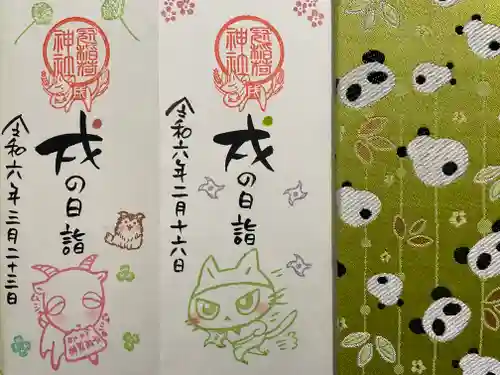 冠稲荷
神社
戌
戌の日詣
令和六年二月十六日
冠稲荷
神社
戌
戌の日詣
令和六年三月二十三日